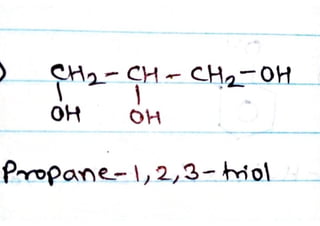 CH2-CH-CH2-OH
OH OH
Propane-1,2,3-triol